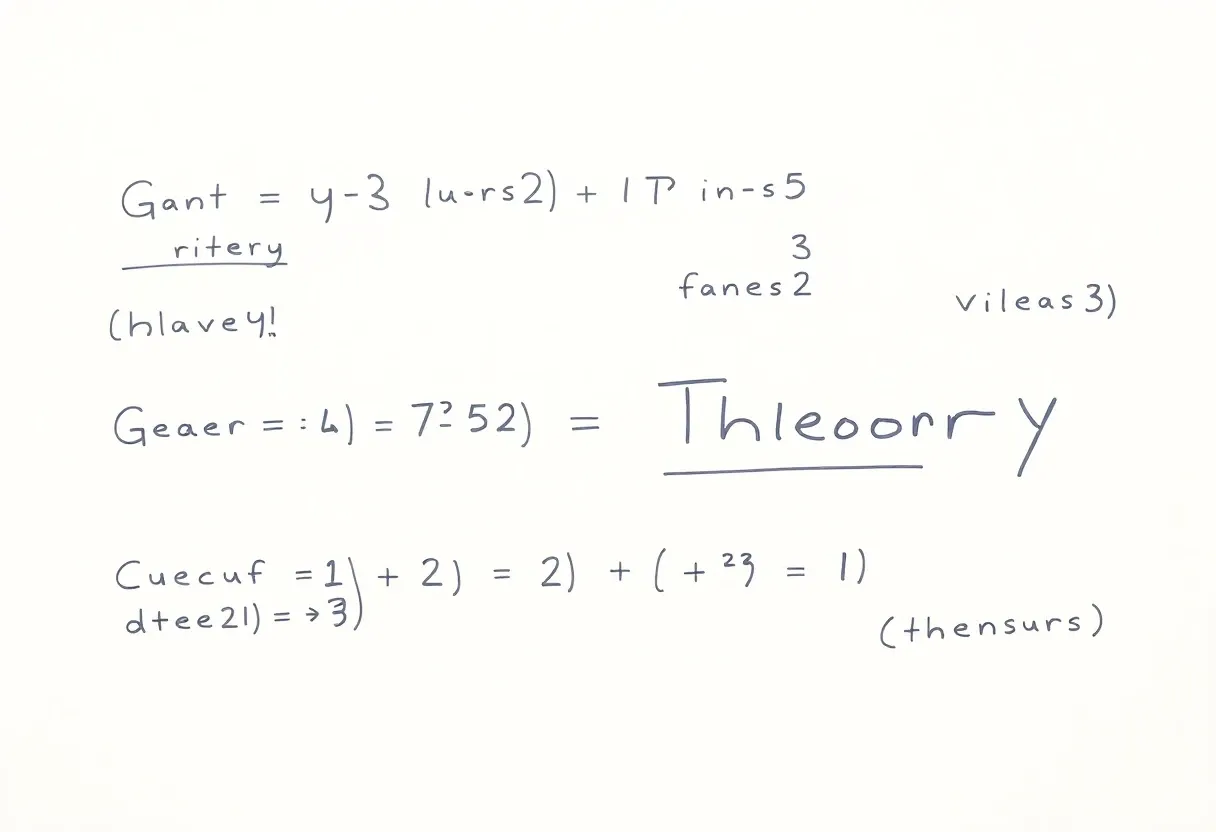 Gant = y-3 lu-rs2) + 1 T in-s5
ritery
3
fanes 2
vileas 3)
(hlavey!
Geaer = : 4) = 7? 52) = Thleoorry
Cuecuf = 1) + 2) = 2) + ( + 23 = 1)
dtee21) = → 3)
(thensurs)